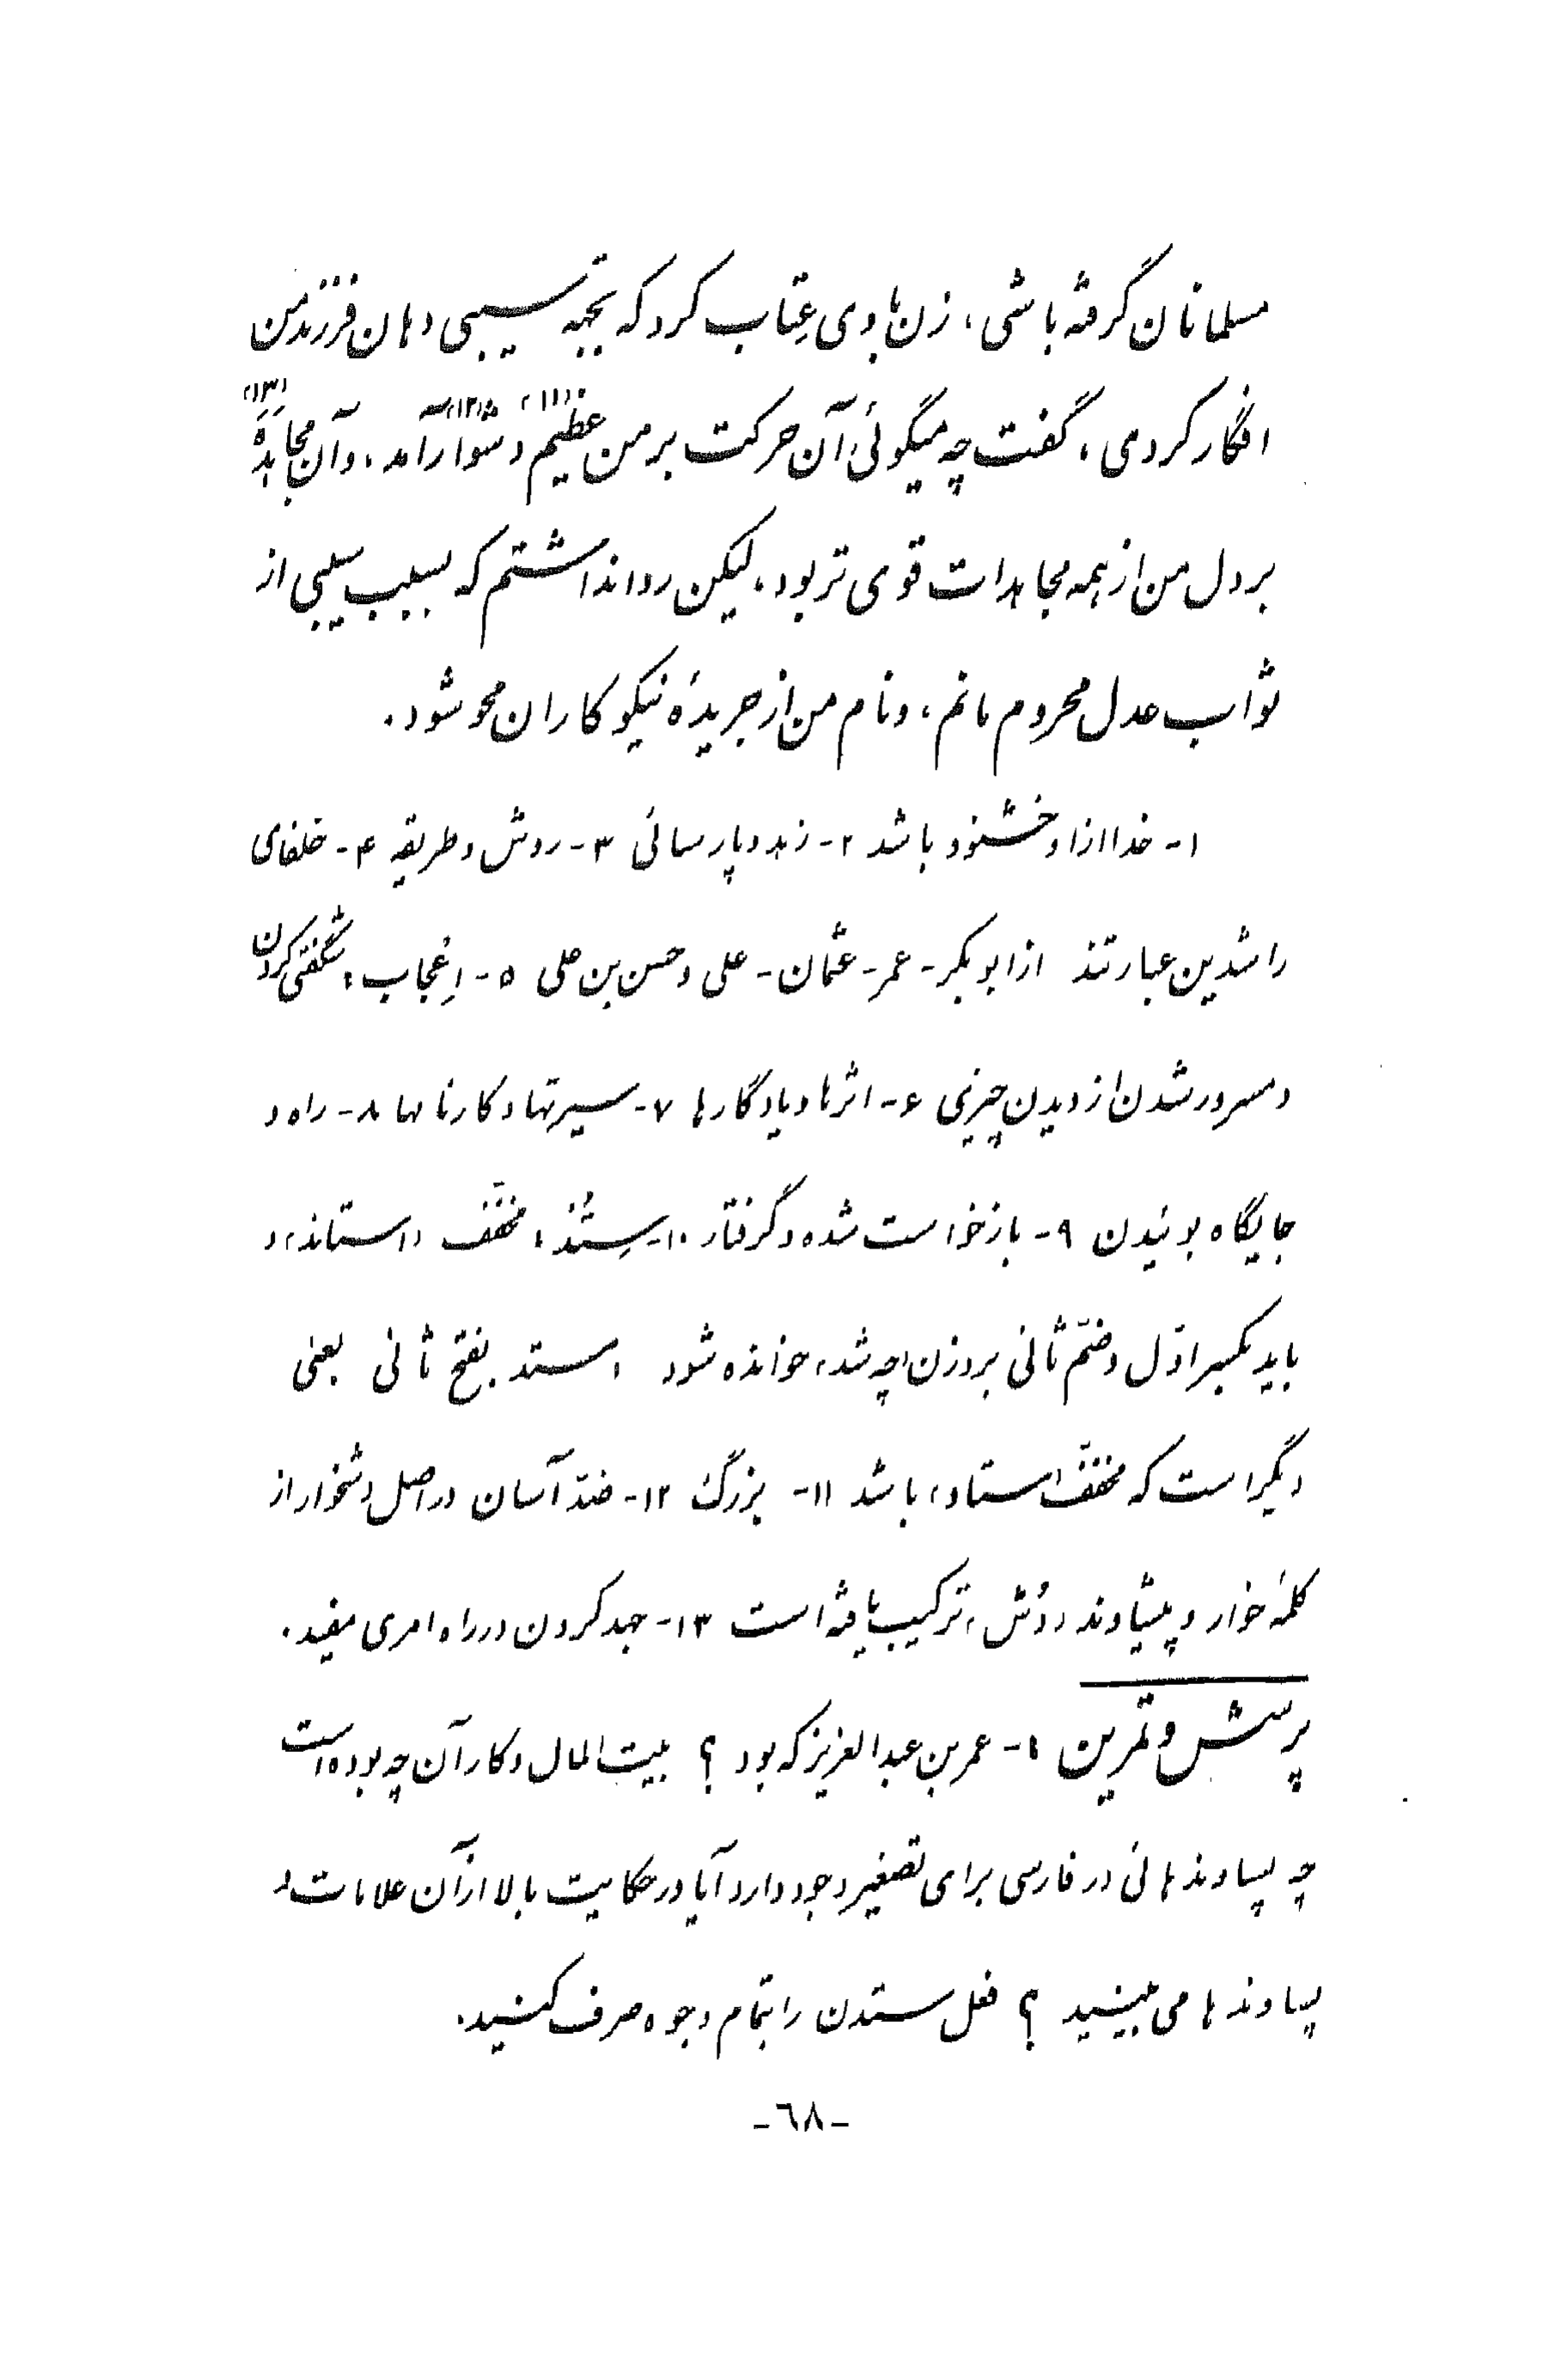 مسلمانان گرفته باشی، زن با وی عِتاب کرد که بجهة سیبی دهان فرزند من
افگار کردی، گفت چه میگوئی آن حرکت بر من عظیم (۱۱) و دشوار (۱۲) آمد، و آن مجاهَدَهٔ (۱۳)
بر دل من از همه مجاهدات قوی تر بود، لیکن روا نداشتم که بسبب سیبی از
ثواب عدل محروم مانم، و نام من از جریدهٔ نیکوکاران محو شود.
۱- خدا ازاو خشنود باشد ۲- زهد و پارسائی ۳- روش و طریقه ۴- خلفای
راشدین عبارتند از ابوبکر- عمر- عثمان- علی و حسن بن علی ۵- اِعْجاب: شگفتی کردن
و مسرور شدن از دیدن چیزی ۶- اثرها و یادگارها ۷- سیرتها و کارنامها ۸- راه و
جایگاه بوئیدن ۹- بازخواست شده و گرفتار ۱۰- سِتُند: مخفّف «استاند» و
باید بکسر اوّل و ضمّ ثانی بر وزن «چه شد» خوانده شود، ستد بفتح ثانی بمعنی
دیگر است که مخفّف «استاد» باشد ۱۱- بزرگ ۱۲- ضدّ آسان در اصل دشخوار از
کلمهٔ خوار و پیشاوند «دُش» ترکیب یافته است ۱۳- جهد کردن در راه امری مفید.
پرسش و تمرین ۱- عمر بن عبدالعزیز که بود ؟ بیت المال و کار آن چه بوده است
چه پساوندهائی در فارسی برای تصغیر وجود دارد آیا در حکایت بالا از آن علامات و
پساوندها می بینید ؟ فعل ستدن را بتمام وجوه صرف کنید.
-٦٨-